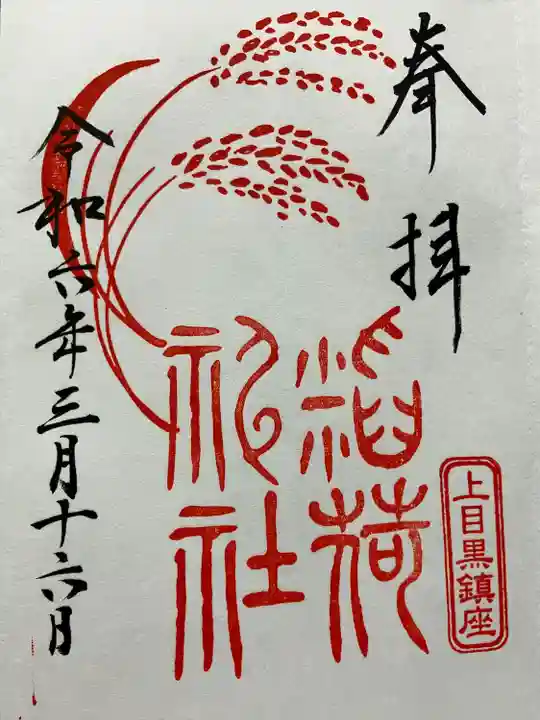 奉拝
上目黒鎮座
稲荷
神社
令和六年三月十六日